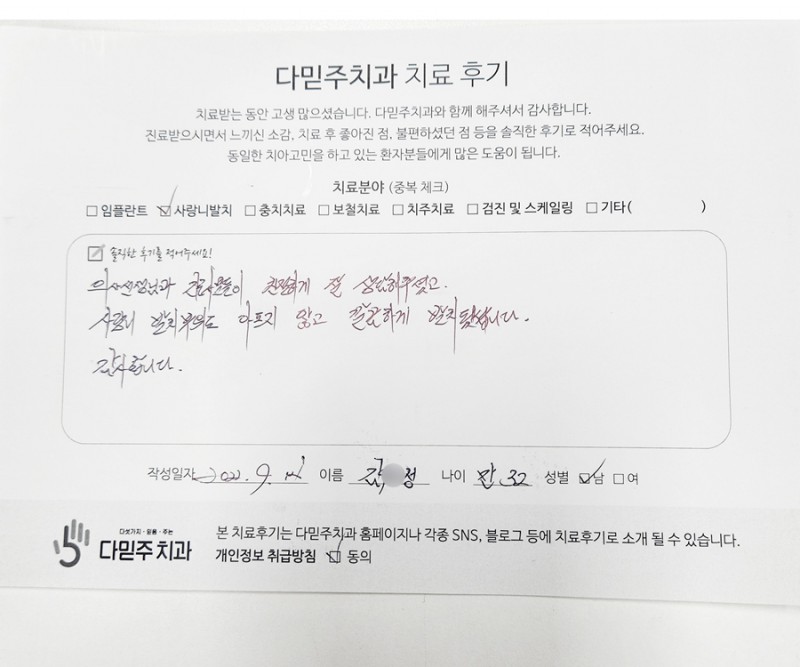 다믿주치과 치료 후기
치료받는 동안 고생 많으셨습니다. 다믿주치과와 함께 해주셔서 감사합니다.
진료받으시면서 느끼신 소감, 치료 후 좋아진 점, 불편하셨던 점 등을 솔직한 후기로 적어주세요.
동일한 치아고민을 하고 있는 환자분들에게 많은 도움이 됩니다.
치료분야 (중복 체크)
임플란트 사랑니발치 충치치료 보철치료 치주치료 검진 및 스케일링 기타( )
솔직한 후기를 적어주세요!
의사선생님과 간호사분들이 친절하게 잘 상담해주셨고.
사랑니 발치부위도 아프지 않고 깔끔하게 발치됐습니다.
감사합니다.
작성일자 2022. 9. 이름 김 정 나이 만.32 성별 남 여
다섯가지·믿음·주는
다믿주치과
본 치료후기는 다믿주치과 홈페이지나 각종 SNS, 블로그 등에 치료후기로 소개 될 수 있습니다.
개인정보 취급방침 동의